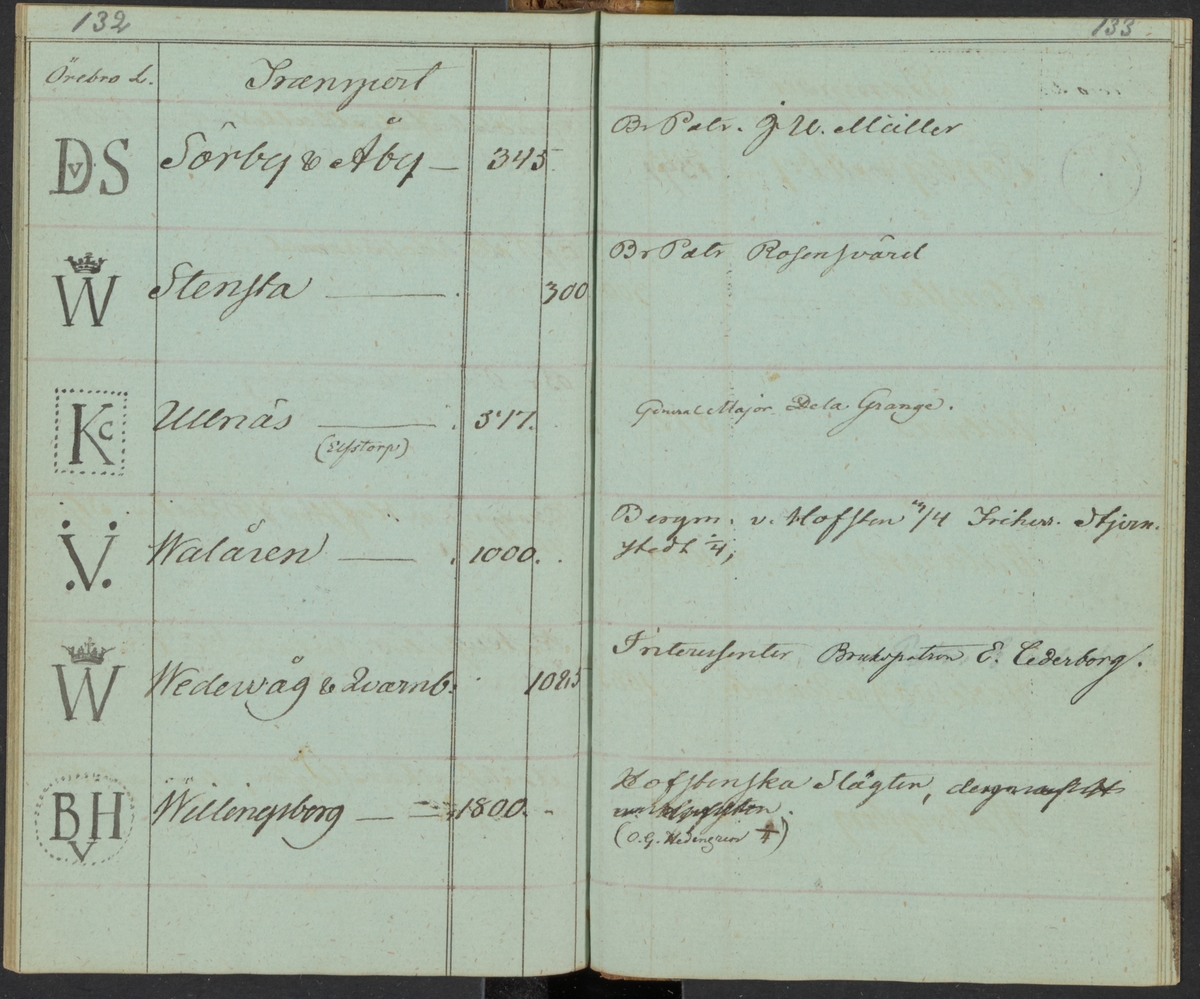 132
133.
Örebro L.
Transport
DVS
Sörby & Åby — 345
Br Patr. J W. Müller
W
Stensta — . 300
Br Patr Rosensvärd
Kc
Ullnäs — . 317.
(Elfstorp)
General Major De la Grange.
.V.
Walåsen — . 1000.
Bergm. v. Hofsten 3/4 Friherr. Stjern-
stedt 1/4;
W
Wedewåg & Qvarnb. 1085
Interessenter Brukspatron E. Cederborg.
BVH
Willingsborg — 1800.
Hofstenska Slägten,
v. Hofsten.
(O.G. Hedengren